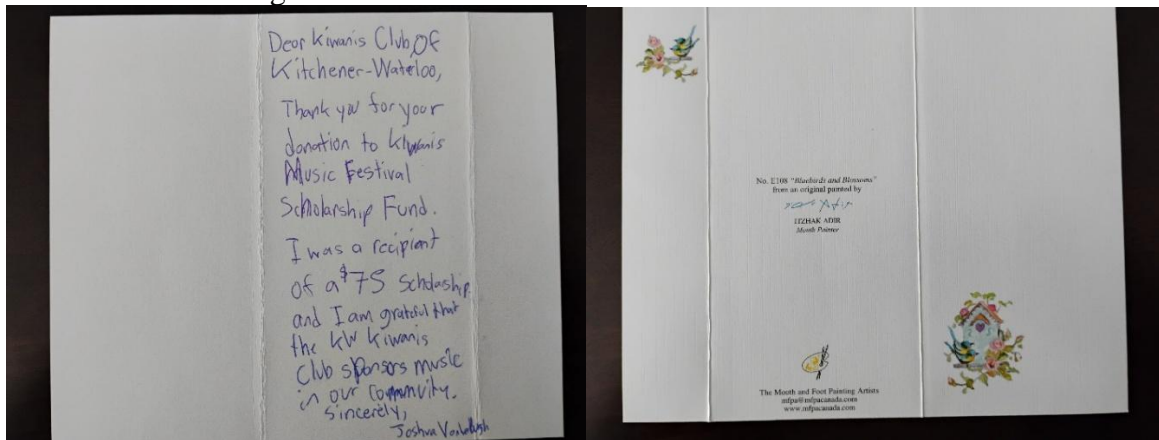 Dear Kiwanis Club Of
Kitchener-Waterloo,
Thank you for your
donation to Kiwanis
Music Festival
Scholarship Fund.
I was a recipient
of a $75 Scholarship
and I am grateful that
the KW Kiwanis
Club sponsors music
in our community.
Sincerely,
Joshua
No. E108 "Bluebirds and Blossoms"
from an original painted by
ITZHAK ADIR
Mouth Painter
The Mouth and Foot Painting Artists
mfpa@mfpacanada.com
www.mfpacanada.com